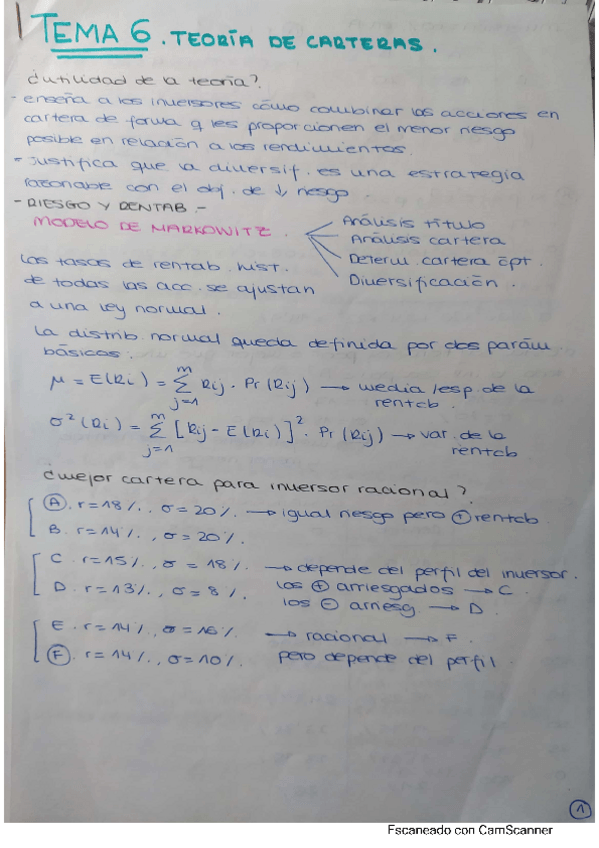 TEMA 6. TEORÍA DE CARTERAS.
¿utilidad de la teoría?
- enseña a los inversores cómo combinar las acciones en
cartera de forma q les proporcionen el menor riesgo
posible en relación a los rendimientos.
- justifica que la diversif. es una estrategia
razonable con el obj. de ↓ riesgo.
- RIESGO Y RENTAB.-
MODELO DE MARKOWITZ.
Análisis título
Análisis cartera
Determ. cartera ópt.
Diversificación.
Las tasas de rentab. hist.
de todas las acc. se ajustan
a una ley normal.
La distrib. normal queda definida por dos parám.
básicos.
μ = E(Ri) = Σ_{j=1}^{m} Rij · Pr(Rij) → media/esp. de la
rentab.
σ²(Ri) = Σ_{j=1}^{m} [Rij - E(Ri)]² · Pr(Rij) → var. de la
rentab
¿mejor cartera para inversor racional?
A. r=18%., σ=20%. → igual riesgo pero ⊕ rentab.
B. r=14%., σ=20%.
C. r=15%., σ=18%. → depende del perfil del inversor.
D. r=13%., σ=8%. los ⊕ arriesgados → C.
los ⊖ arriesg. → D.
E. r=14%., σ=16%. → racional → F.
F. r=14%., σ=10%. pero depende del perfil.
1
Escaneado con CamScanner